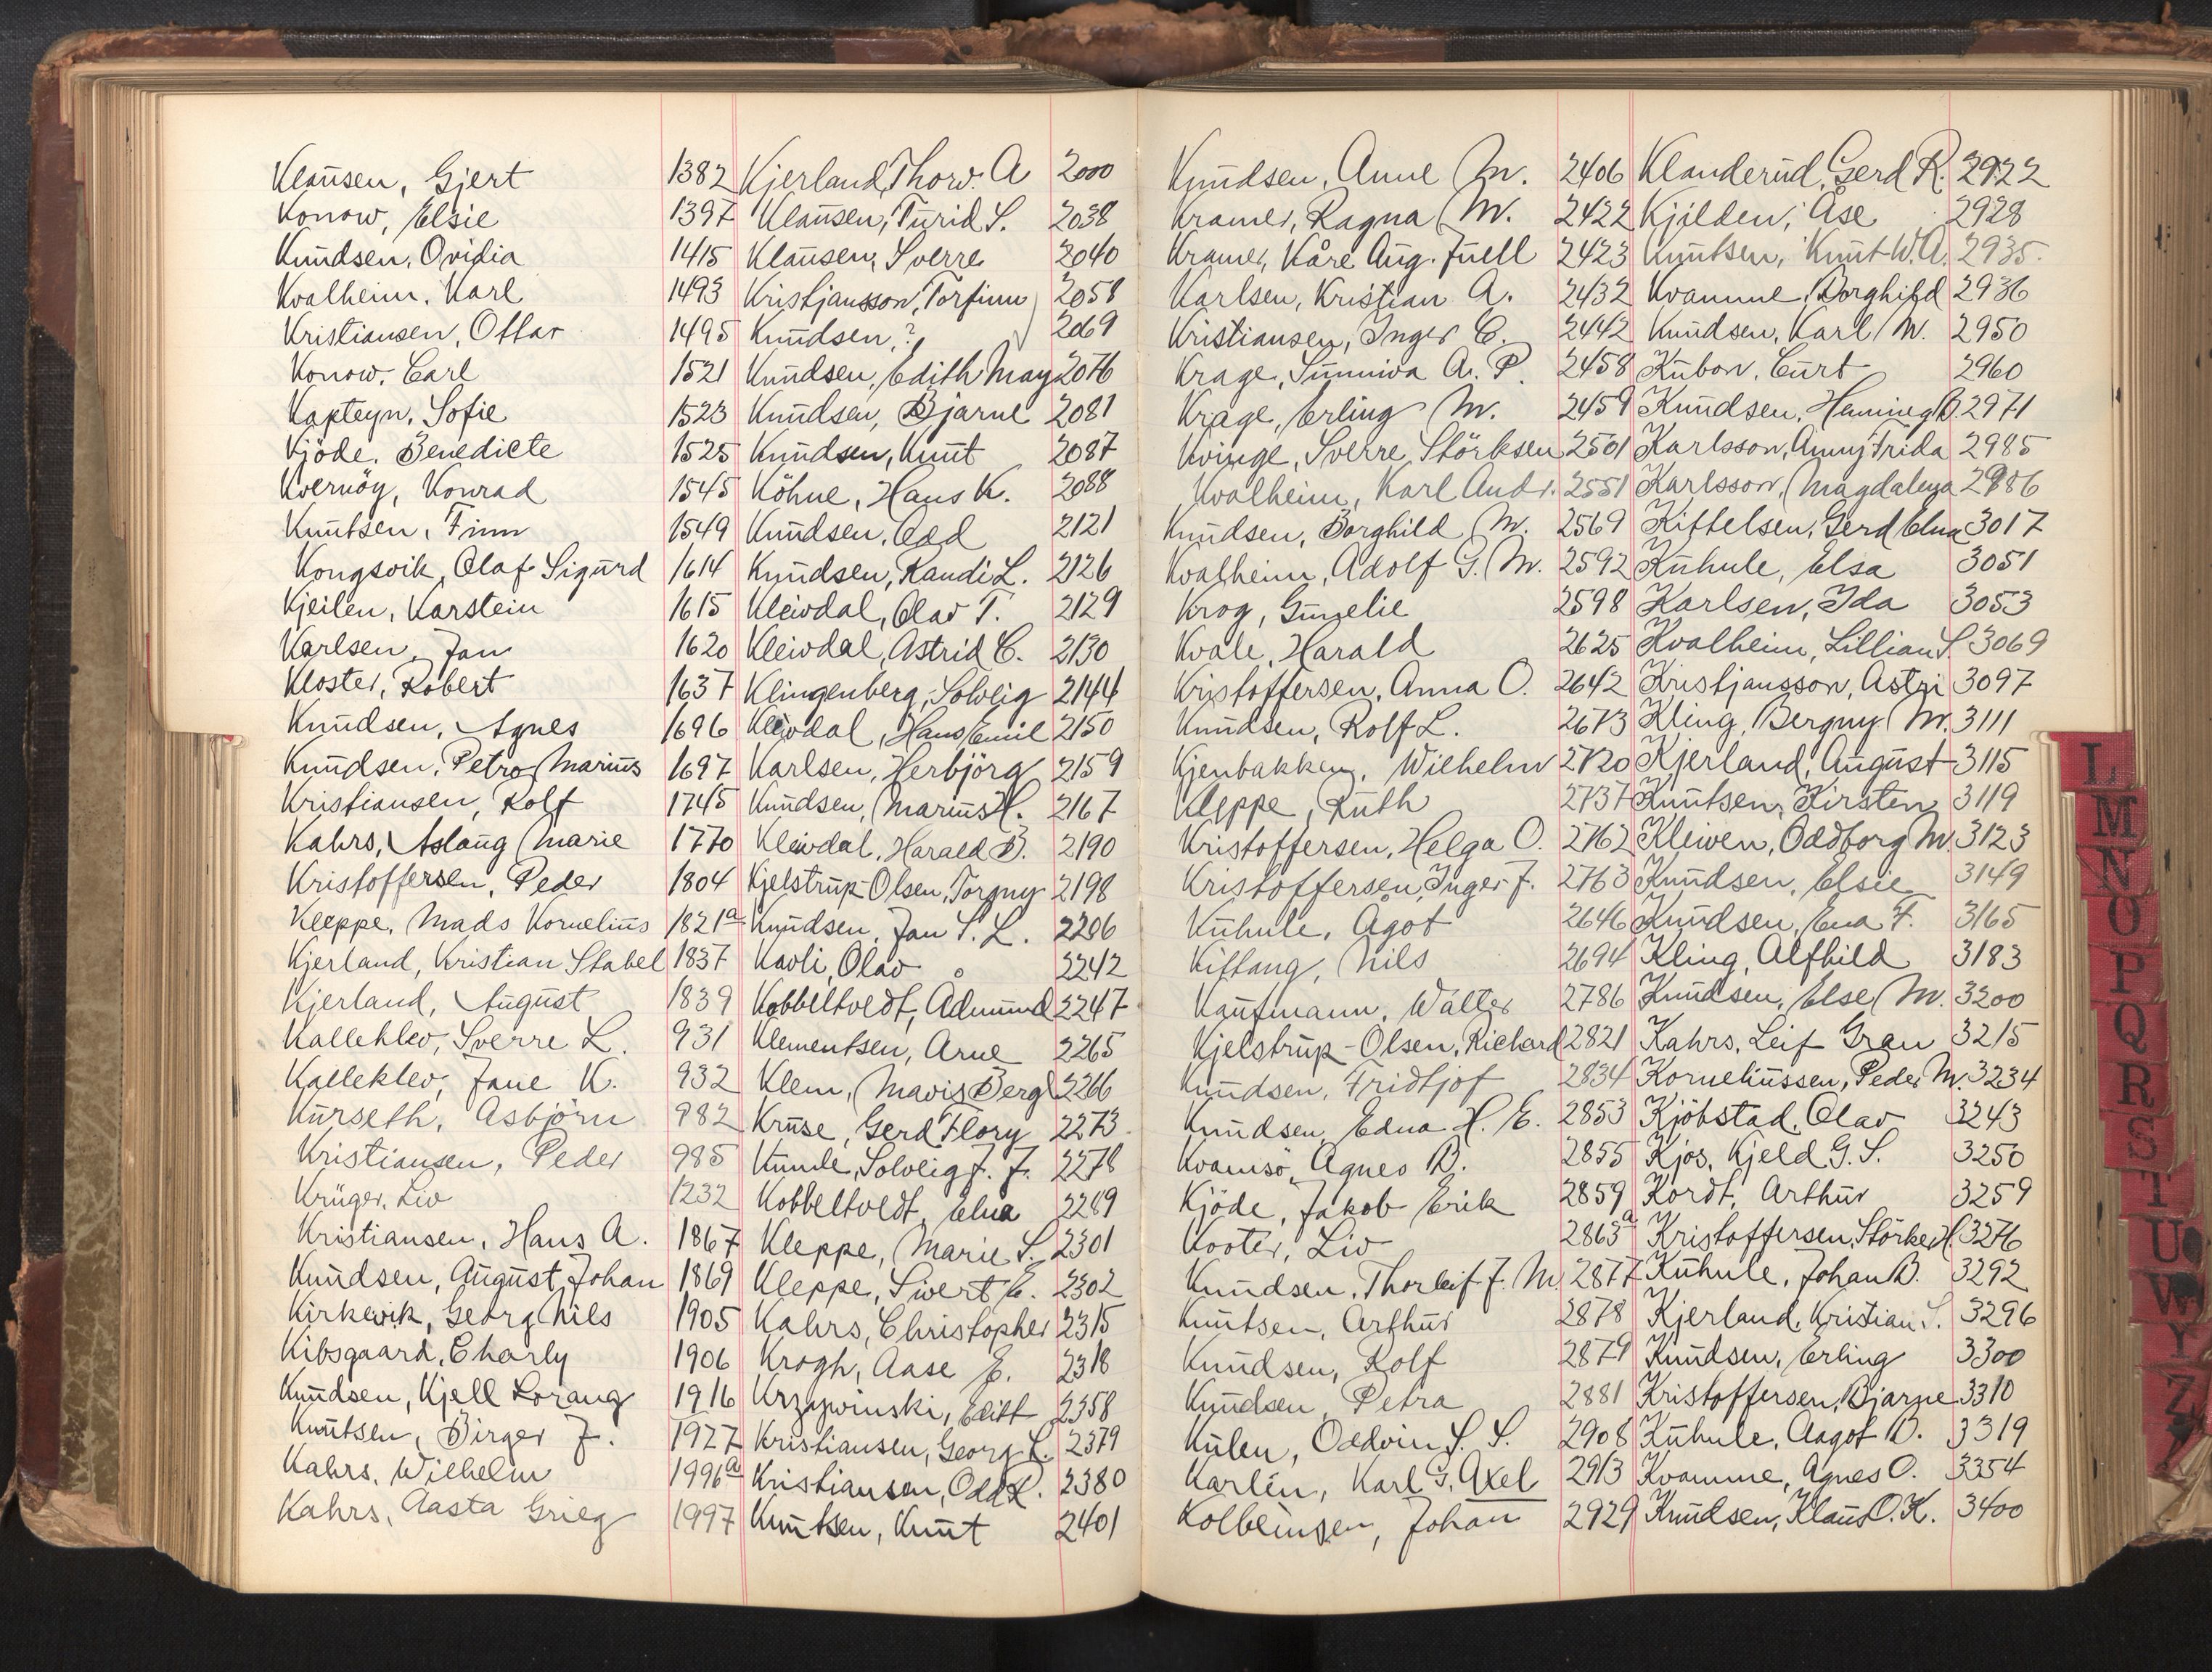 Klausen, Gjert 1382
Konow, Elsie 1397
Knudsen, Ovidia 1415
Kvalheim, Karl 1493
Kristiansen, Ottar 1495
Konow, Carl 1521
Kapteyn, Sofie 1523
Kjöde, Benedicte 1525
Kvernöy, Konrad 1545
Knutsen, Finn 1549
Kongsvik, Olaf Sigurd 1614
Kjeilen, Karstein 1615
Karlsen, Jan 1620
Kloster, Robert 1637
Knudsen, Agnes 1696
Knudsen, Petro Marius 1697
Kristiansen, Rolf 1745
Kahrs, Aslaug Marie 1770
Kristoffersen, Peder 1804
Kleppe, Mads Kornelius 1821a
Kjerland, Kristian Stabel 1837
Kjerland, August 1839
Kalleklev, Sverre L. 931
Kalleklev, Jane K. 932
Kurseth, Asbjörn 982
Kristiansen, Peder 985
Krüger, Liv 1232
Kristiansen, Hans A. 1867
Knudsen, August Johan 1869
Kirkevik, Georg Nils 1905
Kibsgaard, Charly 1906
Knudsen, Kjell Lorang 1916
Knutsen, Birger J. 1927
Kahrs, Wilhelm 1996a
Kahrs, Aasta Grieg 1997
Kjerland, Thorv. A 2000
Klausen, Turid S. 2038
Klausen, Sverre 2040
Kristjansson, Torfinn 2058
Knudsen, ? 2069
Knudsen, Edith May 2076
Knudsen, Bjarne 2081
Knudsen, Knut 2087
Köhne, Hans K. 2088
Knudsen, Odd 2121
Knudsen, Randi L. 2126
Kleivdal, Olav T. 2129
Kleivdal, Astrid C. 2130
Klingenberg, Solveig 2144
Kleivdal, Hans Emil 2150
Karlsen, Herbjörg 2159
Knudsen, Marius H. 2167
Kleivdal, Harald B. 2190
Kjelstrup-Olsen, Torguy 2198
Knudsen, Jan S. L. 2206
Kavli, Olav 2242
Kobbeltvedt, Admund 2247
Klementsen, Arne 2265
Klem, Mavis Bergl 2266
Kruse, Gerd Flory 2273
Kunde, Solveig J. J. 2278
Kobbeltvedt, Elna 2289
Kleppe, Marie S. 2301
Kleppe, Sivert E. 2302
Kahrs, Christopher 2315
Krogh, Aase E. 2318
Krzywinski, Edith 2358
Kristiansen, Georg L. 2379
Kristiansen, Odd R. 2380
Knutsen, Knut 2401
Knudsen, Anne M. 2406
Kramer, Ragna M. 2422
Kramer, Kåre Aug. Juell 2423
Karlsen, Kristian A. 2432
Kristiansen, Inger C. 2442
Krage, Sunniva A. P. 2458
Krage, Erling M. 2459
Kvinge, Sverre Störksen 2501
Kvalheim, Karl Andr. 2551
Knudsen, Borghild M. 2569
Kvalheim, Adolf G. M. 2592
Krog, Gunelie 2598
Kvale, Harald 2625
Kristoffersen, Anna O. 2642
Knudsen, Rolf L. 2673
Kjenbakken, Wilhelm 2720
Kleppe, Ruth 2737
Kristoffersen, Helga O. 2762
Kristoffersen, Inger J. 2763
Kuhnle, Ågot 2646
Kittang, Nils 2694
Kaufmann, Walter 2786
Kjelstrup-Olsen, Richard 2821
Knudsen, Fridtjof 2834
Knudsen, Edna H. E. 2853
Kvamsö, Agnes B. 2855
Kjöde, Jakob Erik 2859
Kooter, Liv 2863a
Knudsen, Thorleif J. M. 2877
Knutsen, Arthur 2878
Knudsen, Rolf 2879
Knudsen, Petra 2881
Kulen, Oddvin S. S. 2908
Karlén, Karl G. Axel 2913
Kolbeinsen, Johan 2929
Klanderud, Gerd R. 2922
Kjilden, Åse 2928
Knutsen, Knut W. A. 2935
Kvamme, Borghild 2936
Knudsen, Karl M. 2950
Kubon, Curt 2960
Knudsen, Henning B. 2971
Karlsson, Anny Frida 2985
Karlsson, Magdalena 2986
Kittelsen, Gerd Elna 3017
Kuhnle, Elsa 3051
Karlsen, Ida 3053
Kvalheim, Lillian S. 3069
Kristjansson, Astri 3097
Kling, Bergny M. 3111
Kjerland, August 3115
Knutsen, Kirsten 3119
Kleiven, Oddborg M. 3123
Knudsen, Elsie 3149
Knudsen, Ena F. 3165
Kling, Alfhild 3183
Knudsen, Else M. 3200
Kahrs, Leif Gran 3215
Korneliussen, Peder M. 3234
Kjöbstad, Olav 3243
Kjos, Kjeld G. S. 3250
Kordt, Arthur 3259
Kristoffersen, Störker H. 3276
Kuhnle, Johan B. 3292
Kjerland, Kristian S. 3296
Knudsen, Erling 3300
Kristoffersen, Bjarne 3310
Kuhnle, Aagot B. 3319
Kvamme, Agnes O. 3354
Knudsen, Klaus O. K. 3400
L
M
N
O
P
Q
R
S
T
U
W
Y
Z